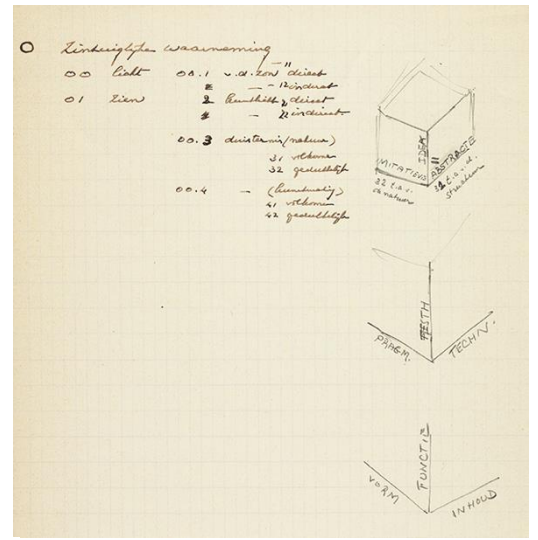 0 Zintuiglijke waarneming
00 licht 00.1 v.d. zon direct
2 — indirect
01 zien 3 kunstlicht direct
4 — indirect
00.3 duisternis (natuur)
31 volkomen
32 gedeeltelijk
00.4 — (kunstmatig)
41 volkomen
42 gedeeltelijk
IDEE
IMITATIEVE
ABSTRACTE
32 t.a.v. de natuur
31 t.a.v. d. structuur
AESTH
PRAGM.
TECHN.
FUNCTIE
VORM
INHOUD